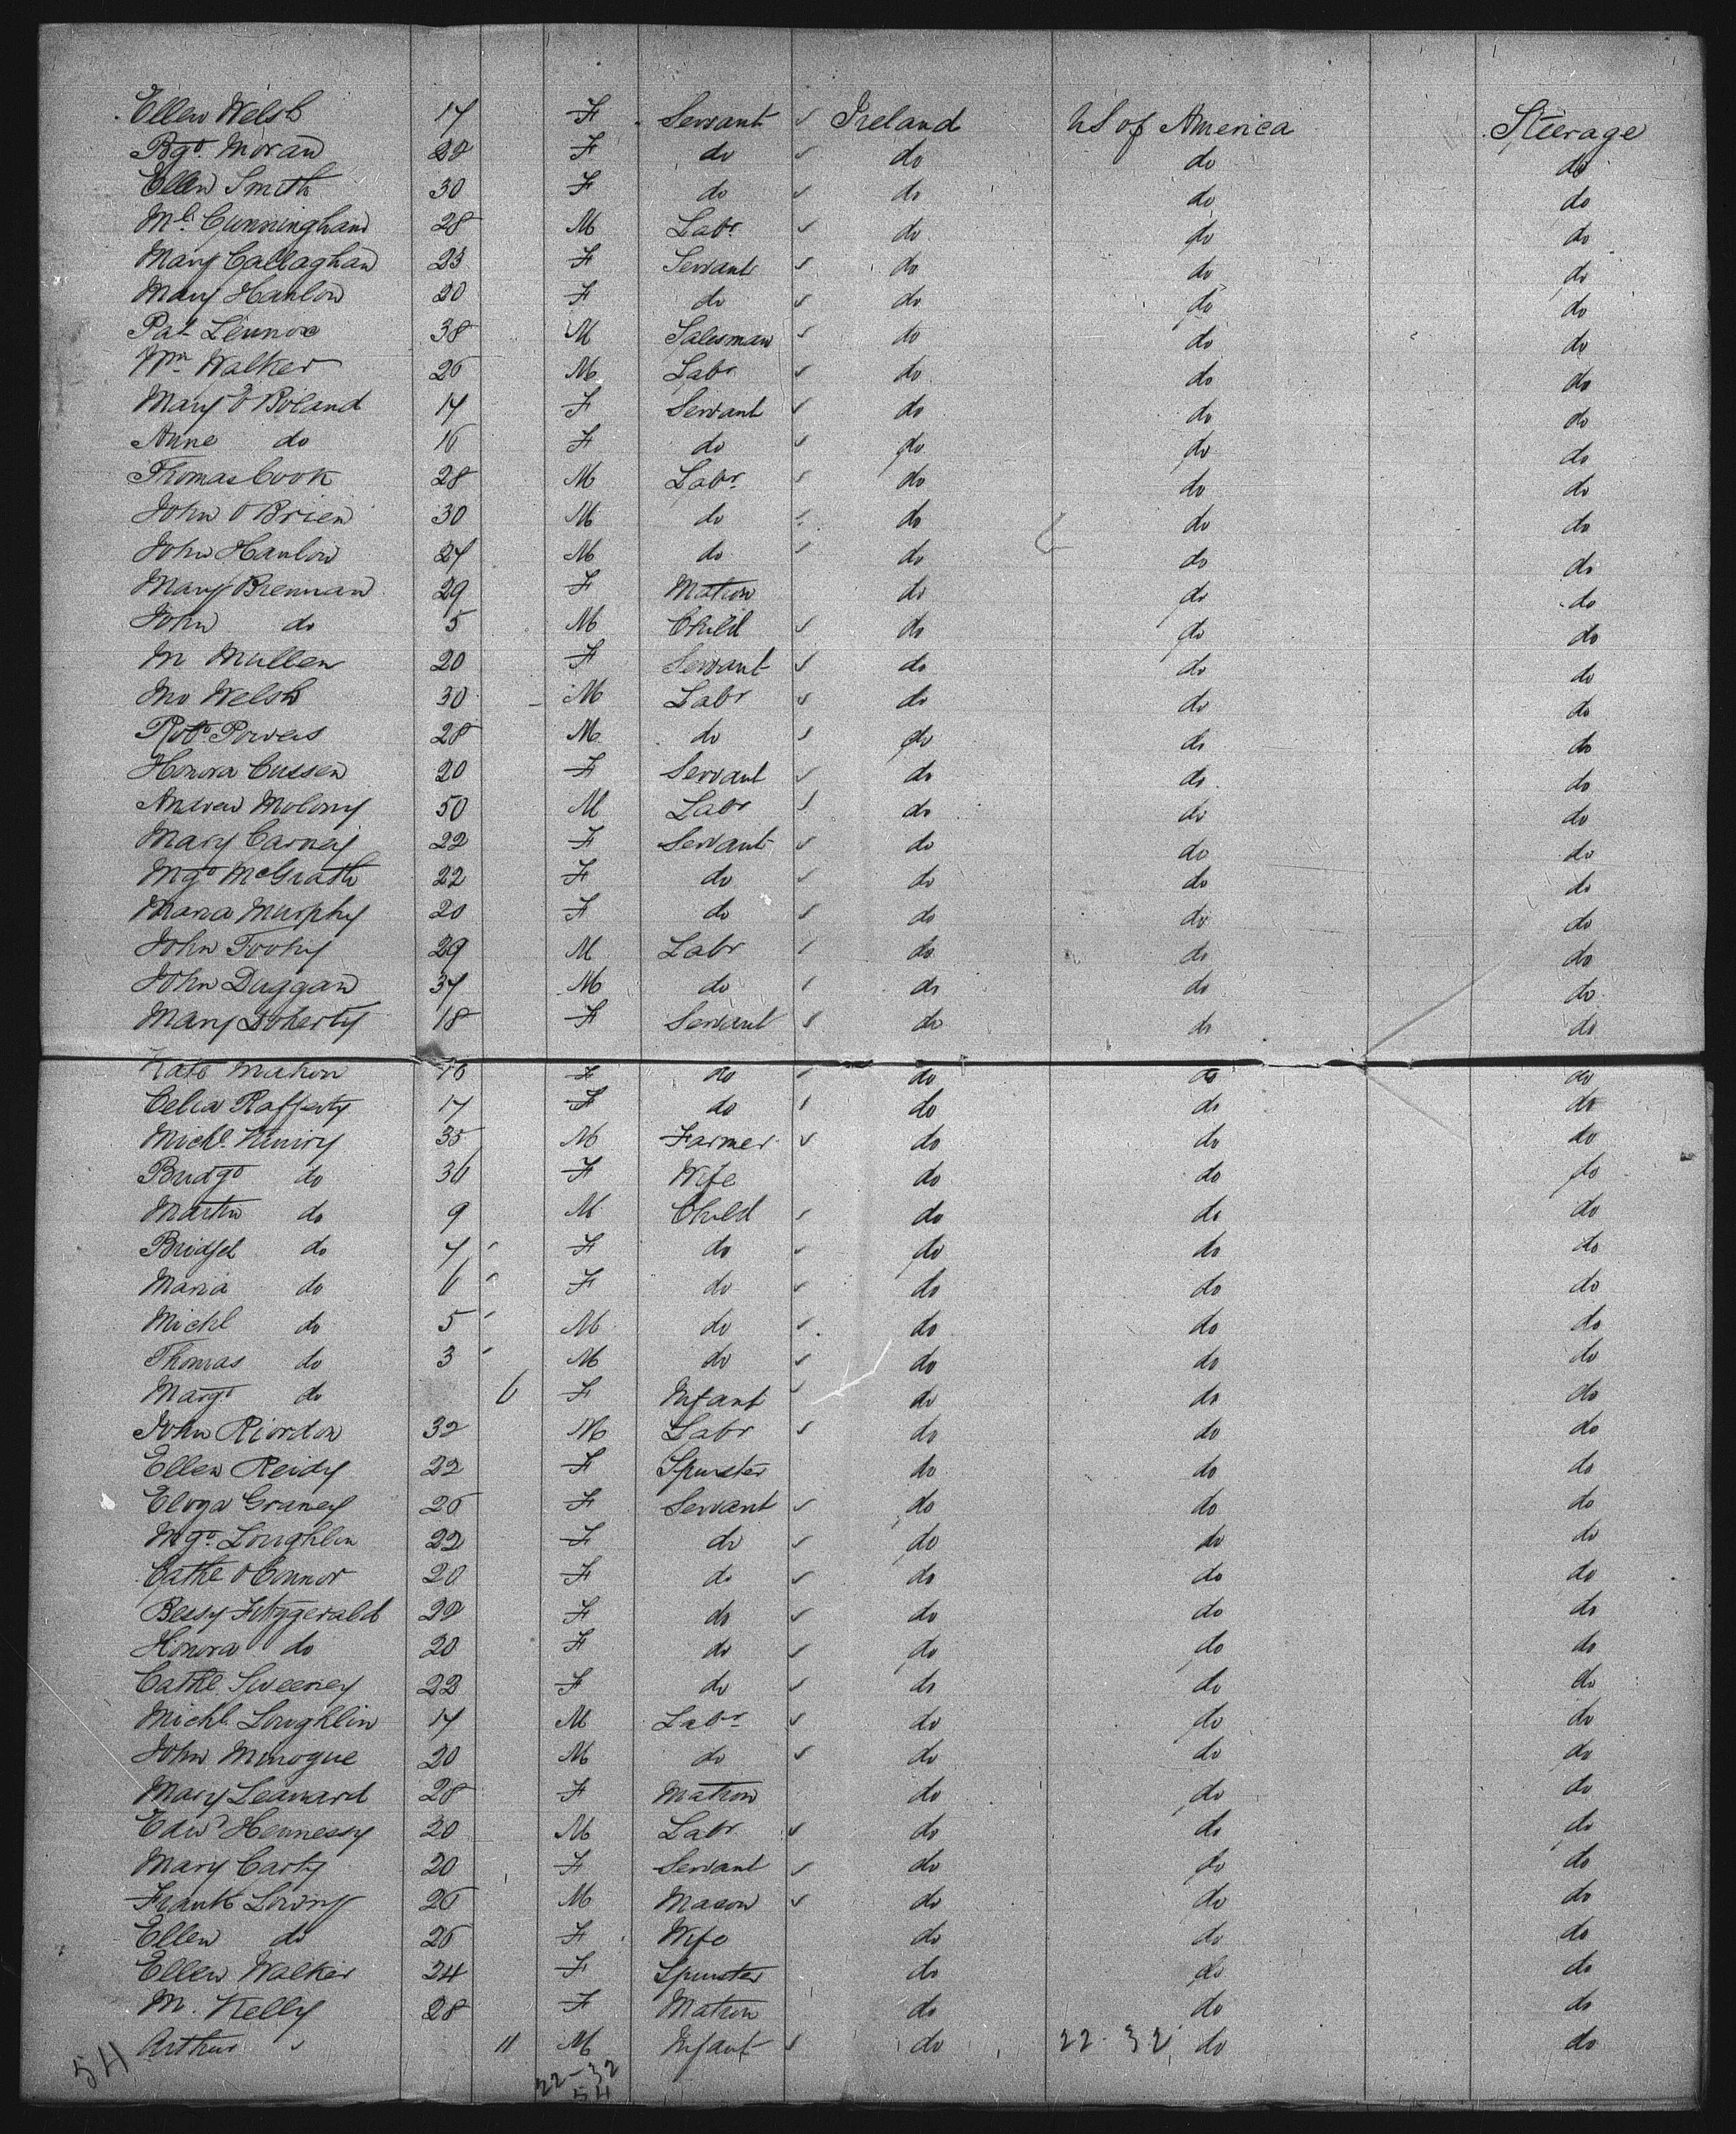 Ellen Welsh 17 F Servant Ireland US of America Steerage
Bgt. Moran 28 F do do do do
Ellen Smith 30 F do do do do
Ml. Cunningham 28 M Labr do do do
Mary Callaghan 23 F Servant do do do
Mary Hanlon 20 F do do do do
Pat Lennox 38 M Salesman do do do
Wm Walker 26 M Labr do do do
Mary O'Boland 17 F Servant do do do
Anne do 16 F do do do do
Thomas Cook 28 M Labr do do do
John O'Brien 30 M do do do do
John Hanlon 27 M do do do do
Mary Brennan 29 F Matron do do do
John do 5 M Child do do do
M Mullen 20 F Servant do do do
Jno Welsh 30 M Labr do do do
Robt Powers 28 M do do do do
Honora Cussen 20 F Servant do do do
Andrew Molony 50 M Labr do do do
Mary Carney 22 F Servant do do do
Mgt McGrath 22 F do do do do
Maria Murphy 20 F do do do do
John Toohy 29 M Labr do do do
John Duggan 37 M do do do do
Mary Doherty 18 F Servant do do do
Kate Mahon F do do do do
Celia Rafferty 17 F do do do do
Michl. 35 M Farmer do do do
Bridgt do 36 F Wife do do do
Martin do 9 M Child do do do
Bridget do 7 F do do do do
Maria do 6 F do do do do
Michl do 5 M do do do do
Thomas do 3 M do do do do
Margt do 6 F Infant do do do
John Riordan 32 M Labr do do do
Ellen Reidy 22 F Spinster do do do
Graney 26 F Servant do do do
Mgt. Loughlin 22 F do do do do
Cathe O'Connor 20 F do do do do
Bessy Fitzgerald 22 F do do do do
Honora do 20 F do do do do
Cathe. Sweeney 22 F do do do do
Michl. Loughlin 17 M Labr do do do
John Minogue 20 M do do do do
Mary Leanard 28 F Matron do do do
Edwd Hennessy 20 M Labr do do do
Mary Carty 20 F Servant do do do
Frank 26 M Mason do do do
Ellen do 26 F Wife do do do
Ellen Walker 24 F Spinster do do do
M. Kelly 28 F Matron do do do
Arthur " 11 M Infant do 22 - 32 do do
54 22-32
54